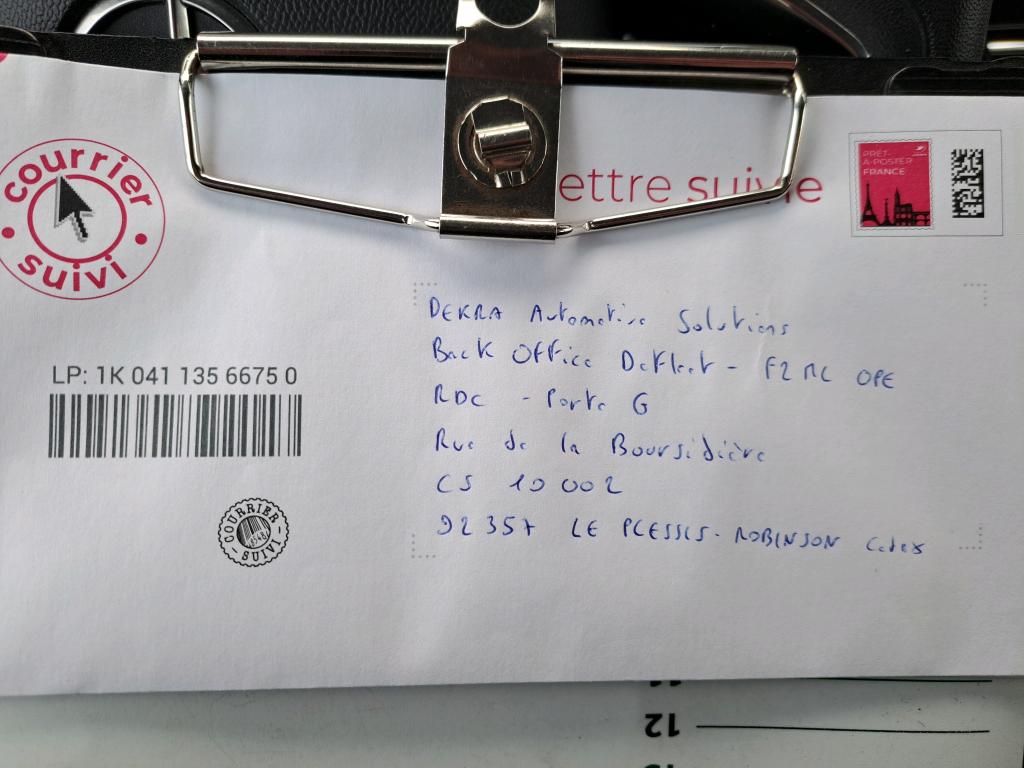 courrier
suivi
ettre suivie
PRÊT-
À-POSTER
FRANCE
DEKRA Automotive Solutions
Back Office DeFleet - F2ML OPE
RDC - Porte G
Rue de la Boursidière
CS 10002
92357 LE PLESSIS-ROBINSON Cedex
LP: 1K 041 135 6675 0
COURRIER
SUIVI
12